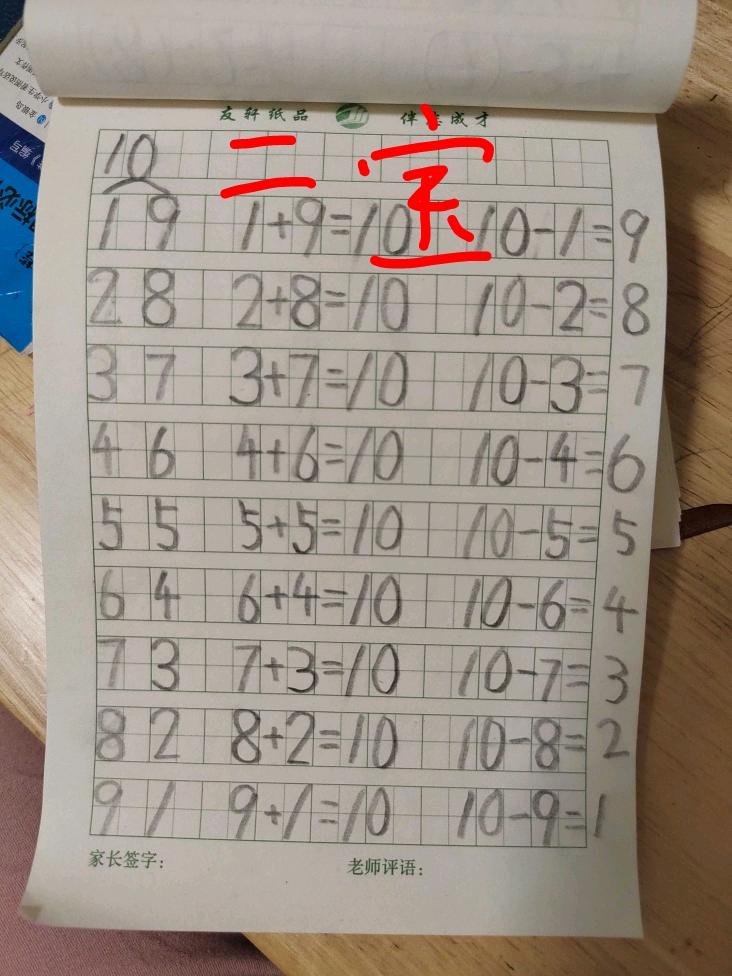 友轩纸品 伴志成才
二宝
10
1 9 1+9=10 10-1=9
2 8 2+8=10 10-2=8
3 7 3+7=10 10-3=7
4 6 4+6=10 10-4=6
5 5 5+5=10 10-5=5
6 4 6+4=10 10-6=4
7 3 7+3=10 10-7=3
8 2 8+2=10 10-8=2
9 1 9+1=10 10-9=1
家长签字: 老师评语: